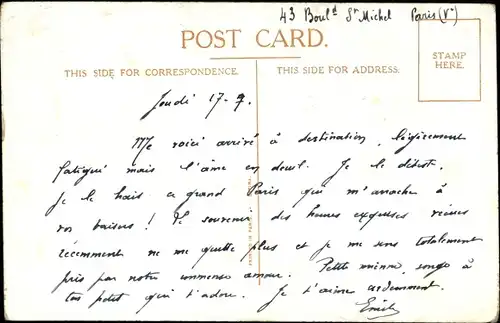 43 Boulᵈ Sᵗ Michel Paris (Vᵉ)
POST CARD.
THIS SIDE FOR CORRESPONDENCE.
THIS SIDE FOR ADDRESS.
STAMP
HERE.
Jeudi 17-7.
Me voici arrivé à destination, légèrement
fatigué mais l'âme en deuil. Je le déteste,
je le hais ce grand Paris qui m'arrache à
vos baisers ! Le souvenir des heures exquises vécues
récemment ne me quitte plus et je me sens totalement
pris par notre immense amour. Petite mienne, songe à
ton petit qui t'adore. Je t'aime ardemment.
Emile